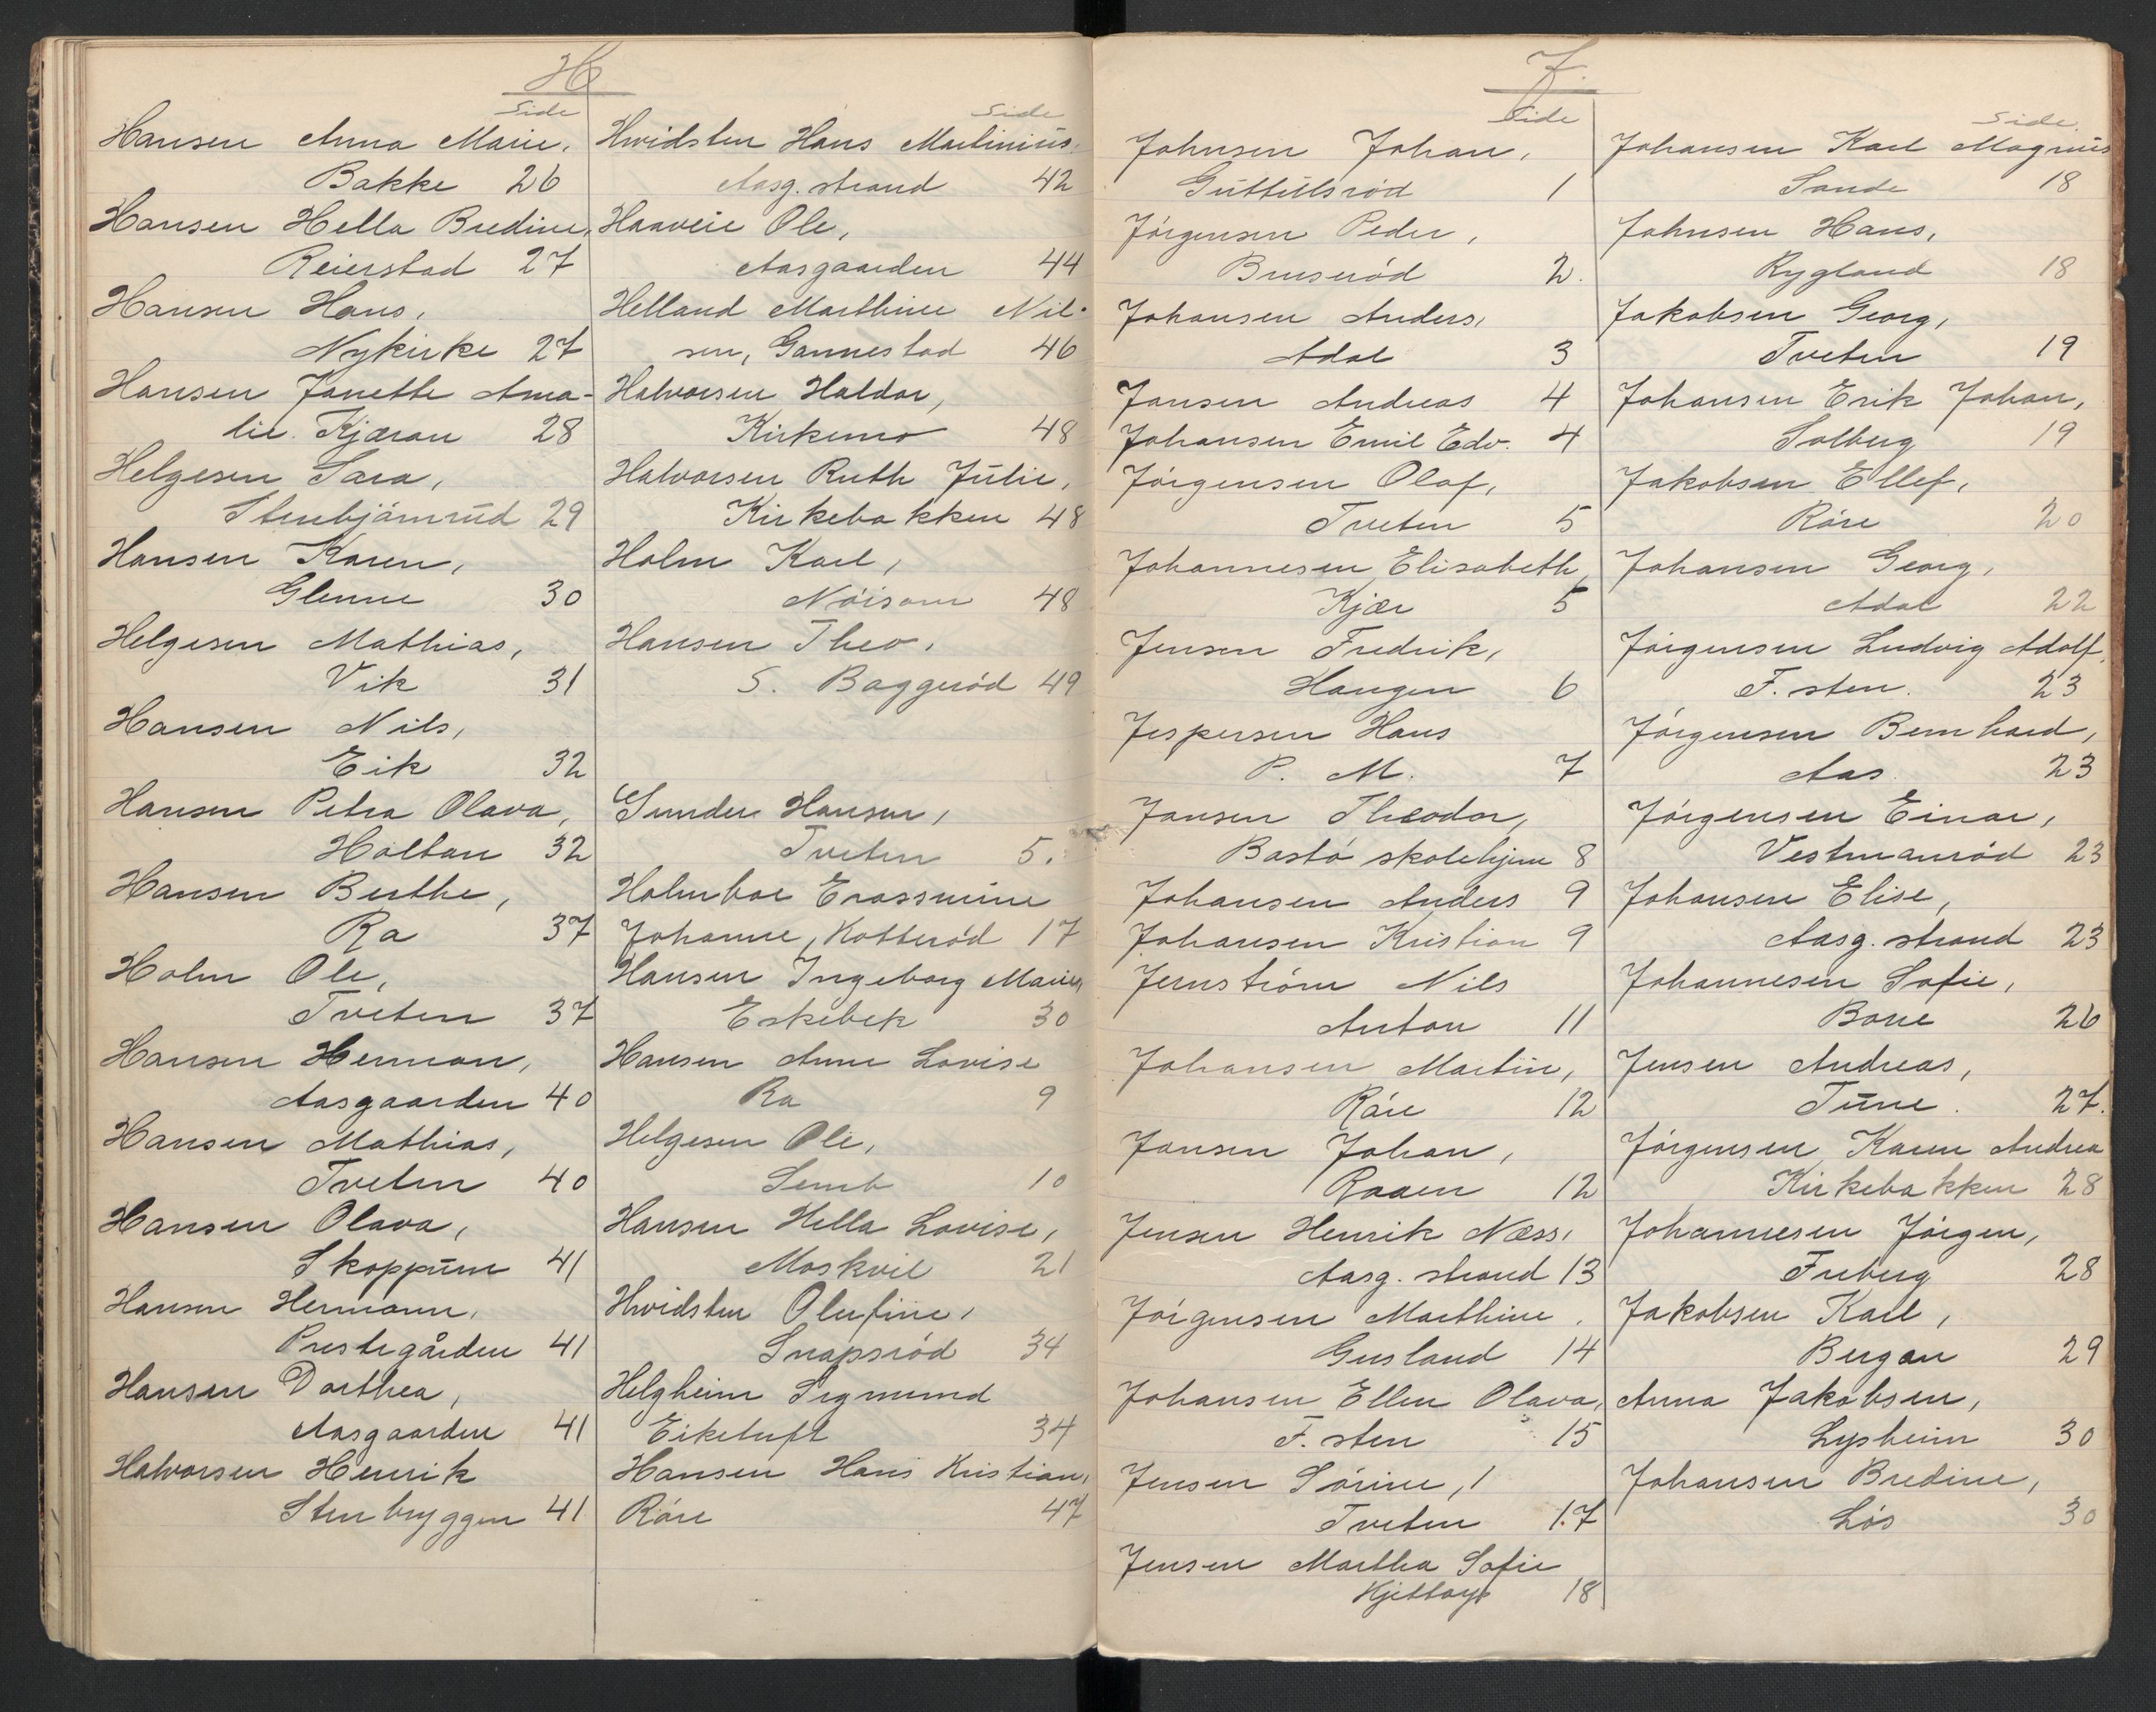 H
Side
Hansen Anna Marie,
Bakke 26
Hansen Hella Bredine,
Reierstad 27
Hansen Hans,
Nykirke 27
Hansen Janette Ama-
lie. Kjæran 28
Helgesen Sara,
Stenbjämrud 29
Hansen Karen,
Glenne 30
Helgesen Mathias,
Vik 31
Hansen Nils,
Eik 32
Hansen Petra Olava,
Holtan 32
Hansen Berthe,
Ra 37
Holm Ole,
Tveten 37
Hansen Herman,
Aasgaarden 40
Hansen Mathias,
Tveten 40
Hansen Olava,
Skoppum 41
Hansen Hermann,
Prestegården 41
Hansen Dorthea,
Aasgaarden 41
Halvorsen Henrik
Stenbryggen 41
Side
Hvidsten Hans Martinius,
Aasg. strand 42
Haaveie Ole,
Aasgaarden 44
Helland Marthine Nil-
sen, Gannestad 46
Halvorsen Haldor,
Kirkemo 48
Halvorsen Ruth Julie,
Kirkebakken 48
Holm Karl,
Nöisom 48
Hansen Theo,
S. Baggeröd 49
Gunder Hansen,
Tveten 5.
Holmboe Erassmine
Johanne, Kotteröd 17
Hansen Ingeborg Marie,
Eskebek 30
Hansen Anne Lovise
Ra 9
Helgesen Ole,
Semb 10
Hansen Hella Lovise,
Moskvil 21
Hvidsten Olufine,
Snapsröd 34
Helgheim Sigmund
Eiketuft 34
Hansen Hans Kristian,
Röre 47
J.
Side
Johnsen Johan,
Guttulsröd 1
Jörgensen Peder,
Brusröd 2.
Johansen Anders,
Adal 3
Jansen Andreas 4
Johansen Emil Edv. 4
Jörgensen Olaf,
Tveten 5
Johannesen Elisabeth,
Kjær 5
Jensen Fredrik,
Haugen 6
Jespersen Hans
P. M. 7
Jansen Theodor,
Bastö skolehjem 8
Johansen Anders 9
Johansen Kristian 9
Jernström Nils
Anton 11
Johansen Martin,
Röre 12
Jansen Johan,
Raaen 12
Jensen Henrik Næss,
Aasg. strand 13
Jörgensen Marthine,
Gusland 14
Johansen Ellen Olava,
F. sten 15
Jensen Sörine, 1
Tveten 1.7
Jensen Martha Sofie
18
Side
Johansen Karl Magnus
Sande 18
Johnsen Hans,
Rygland 18
Jakobsen Georg,
Tveten 19
Johansen Erik Johan,
Solberg 19
Jakobsen Ellef,
Röre 20
Johansen Georg,
Adal 22
Jörgensen Ludvig Adolf,
F. sten. 23
Jörgensen Bernhard,
Aas. 23
Jörgensen Einar,
Vestmanröd 23
Johansen Elise,
Aasg. strand 23
Johannesen Sofie,
Borre 26
Jensen Andreas,
Tune. 27.
Jörgensen Karen Andrea
Kirkebakken 28
Johannesen Jörgen,
Freberg 28
Jakobsen Karl,
Bergan 29
Anna Jakobsen,
Lysheim 30
Johansen Bredine,
Lös 30